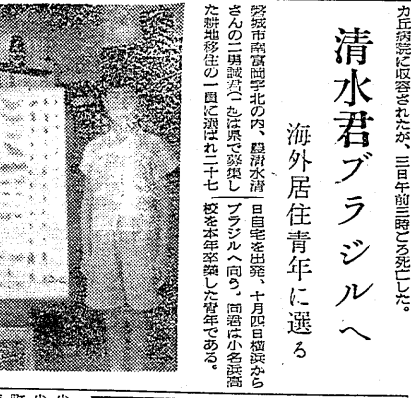 カ丘病院に収容されたが、三日午前三時ごろ死亡した。
清水君ブラジルへ
海外居住青年に選る
磐城市南富岡字北の内、農清水清
さんの二男誠君(一九)は県で募集し
た耕地移住の一員に選ばれ二十七
日自宅を出発、十月四日横浜から
ブラジルへ向う。同君は小名浜高
校を本年卒業した青年である。